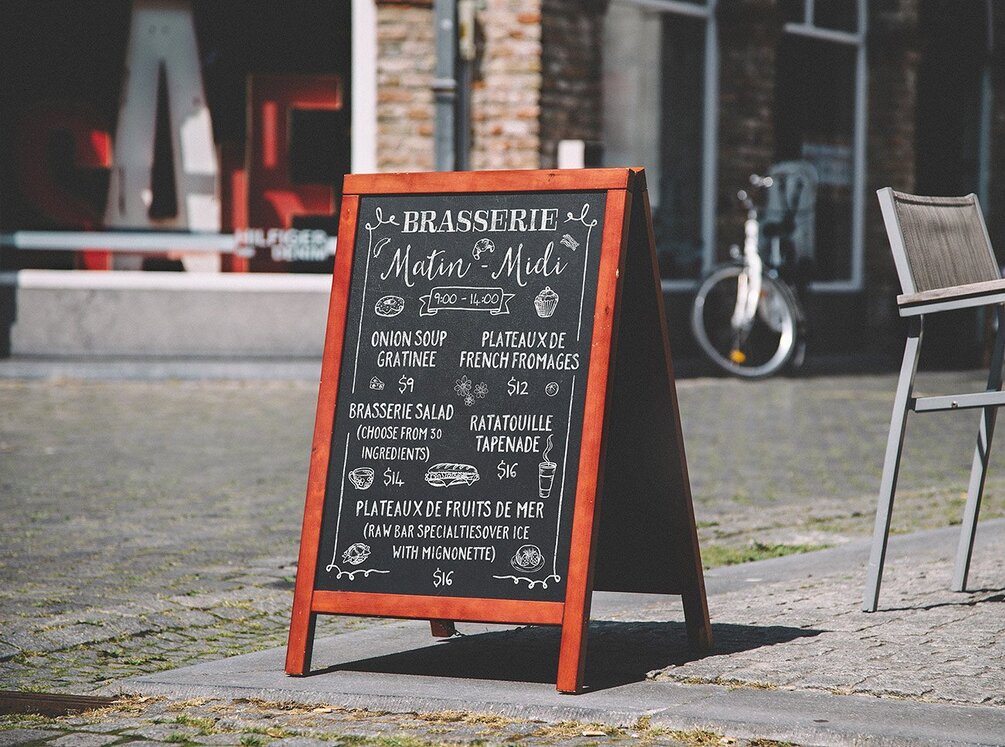 SALE
HILFIGER
DENIM
BRASSERIE
Matin - Midi
9:00 - 14:00
ONION SOUP
GRATINEE
$9
PLATEAUX DE
FRENCH FROMAGES
$12
BRASSERIE SALAD
(CHOOSE FROM 30
INGREDIENTS)
$14
RATATOUILLE
TAPENADE
$16
PLATEAUX DE FRUITS DE MER
(RAW BAR SPECIALTIESOVER ICE
WITH MIGNONETTE)
$16